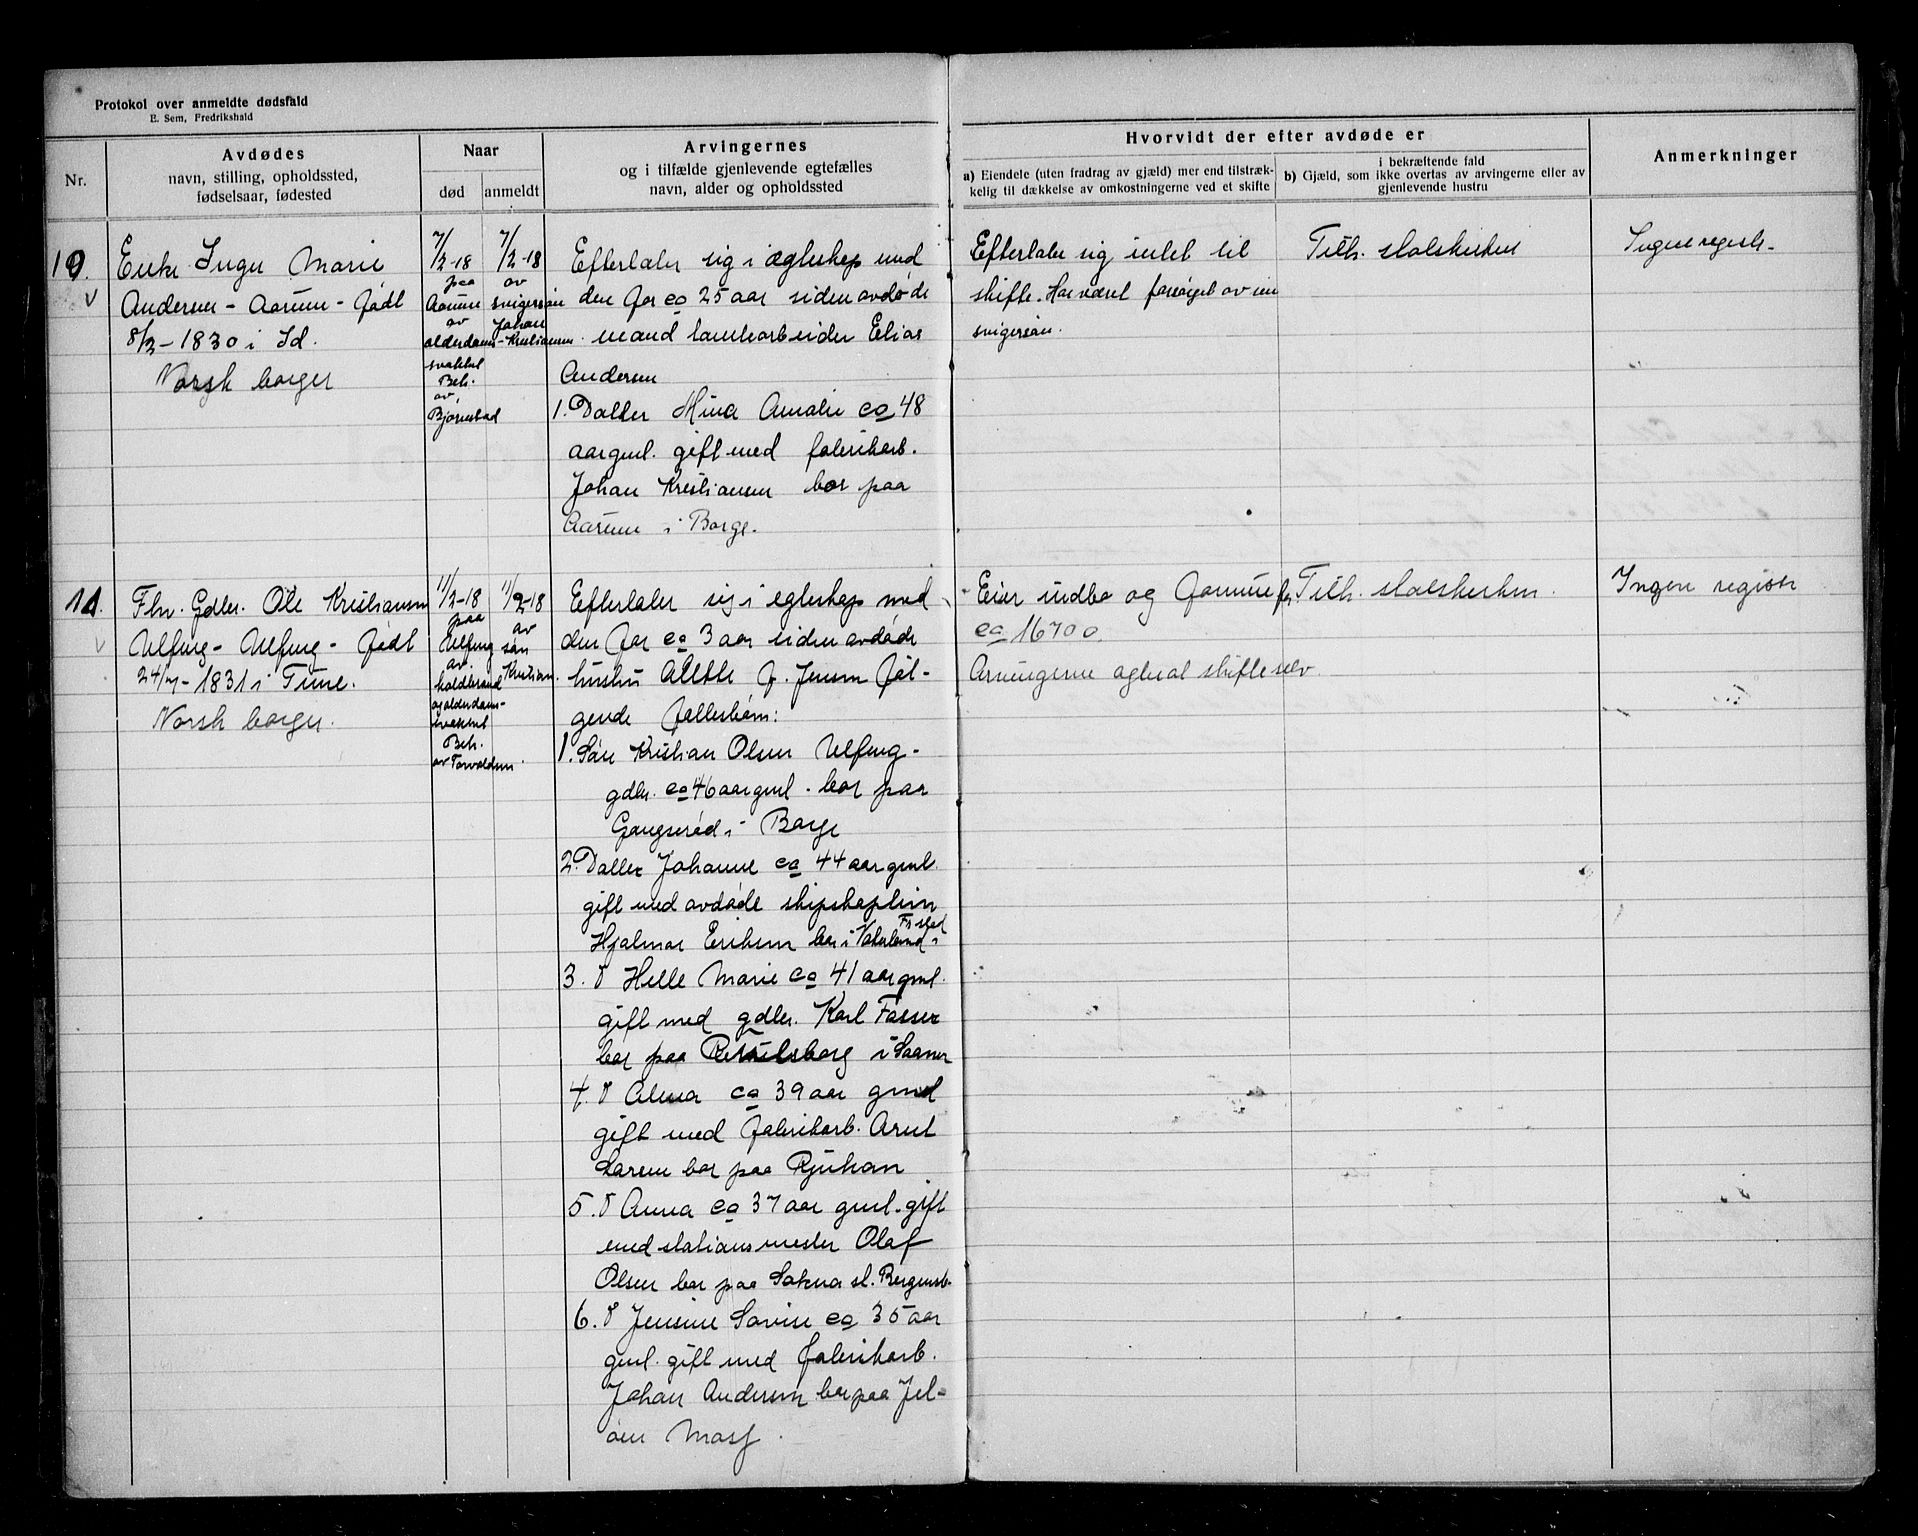 Protokol over anmeldte dødsfald
E. Sem, Fredrikshald
Nr.
Avdødes
navn, stilling, opholdssted,
fødselsaar, fødested
Naar
død
anmeldt
Arvingernes
og i tilfælde gjenlevende egtefælles
navn, alder og opholdssted
Hvorvidt der efter avdøde er
a) Eiendele (uten fradrag av gjæld) mer end tilstræk-
kelig til dækkelse av omkostningerne ved et skifte
i bekræftende fald
b) Gjæld, som ikke overtas av arvingerne eller av
gjenlevende hustru
Anmerkninger
10.
Enke Inger Marie
Andersen - Aarum - født
8/3 - 1830 i Id.
Norsk borger
7/2-18
paa
Aarum
av
alderdoms-
svakhet
Beh.
av
Bjørnstad
7/2-18
av
svigersøn
Johan
Kristiansen.
Efterlater sig i ægteskap med
den for ca 25 aar siden avdøde
mand tomtearbeider Elias
Andersen
1. Datter Mina Amalie ca 48
aar gml. gift med fabrikarb.
Johan Kristiansen bor paa
Aarum i Borge.
Efterlater sig intet til
skifte. Har været forsørget av sin
svigersøn.
Tilh. statskirken
Ingen registr.
11.
Fhv. Gdbr. Ole Kristiansen
Ulfeng - Ulfeng - født
24/7 - 1831 i Tune.
Norsk borger.
11/2-18
paa
Ulfeng
av
koldbrand
og alderdoms-
svakhet
Beh.
av Torvaldsen.
11/2-18
av
søn
Kristian.
Efterlater sig i egteskap med
den for ca 3 aar siden avdøde
hustru Alette f. Jensen føl-
gende fællesbørn:
1. Søn Kristian Olsen Ulfeng -
gdbr. ca 46 aar gml. bor paa
Gangerød i Borge
2. Datter Johanne ca 44 aar gml.
gift med avdøde skipskaptein
Hjalmar Eriksen bor i Vaterland i
Fr.stad
3. d Helle Marie ca 41 aar gml.
gift med gdbr. Karl Fosser
bor paa i Saaner
4. d Alma ca 39 aar gml
gift med fabrikarb. Arnt
Larsen bor paa Rjukan
5. d Anna ca 37 aar gml. gift
med stationsmester Olaf
Olsen bor paa st. Bergensb.
6. d Jensine Lovise ca 35 aar
gml. gift med fabrikarb.
Johan Andersen bor paa Jel-
øen Moss.
Eier indbo og formue for
ca 16700
Arvingerne agter at skifte selv
Tilh. statskirken.
Ingen registr